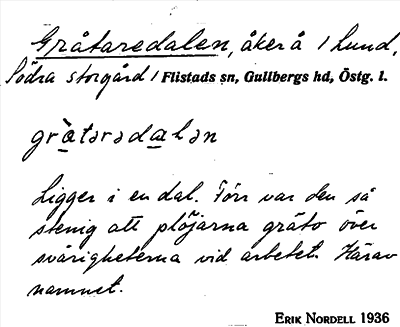 Gråtaredalen, åker å 1 Lund,
Södra storgård / Flistads sn, Gullbergs hd, Östg. l.
gràtərədalən
Ligger i en dal. Förr var den så
stenig att plöjarna gräto över
svårigheterna vid arbetet. Härav
namnet.
ERIK NORDELL 1936